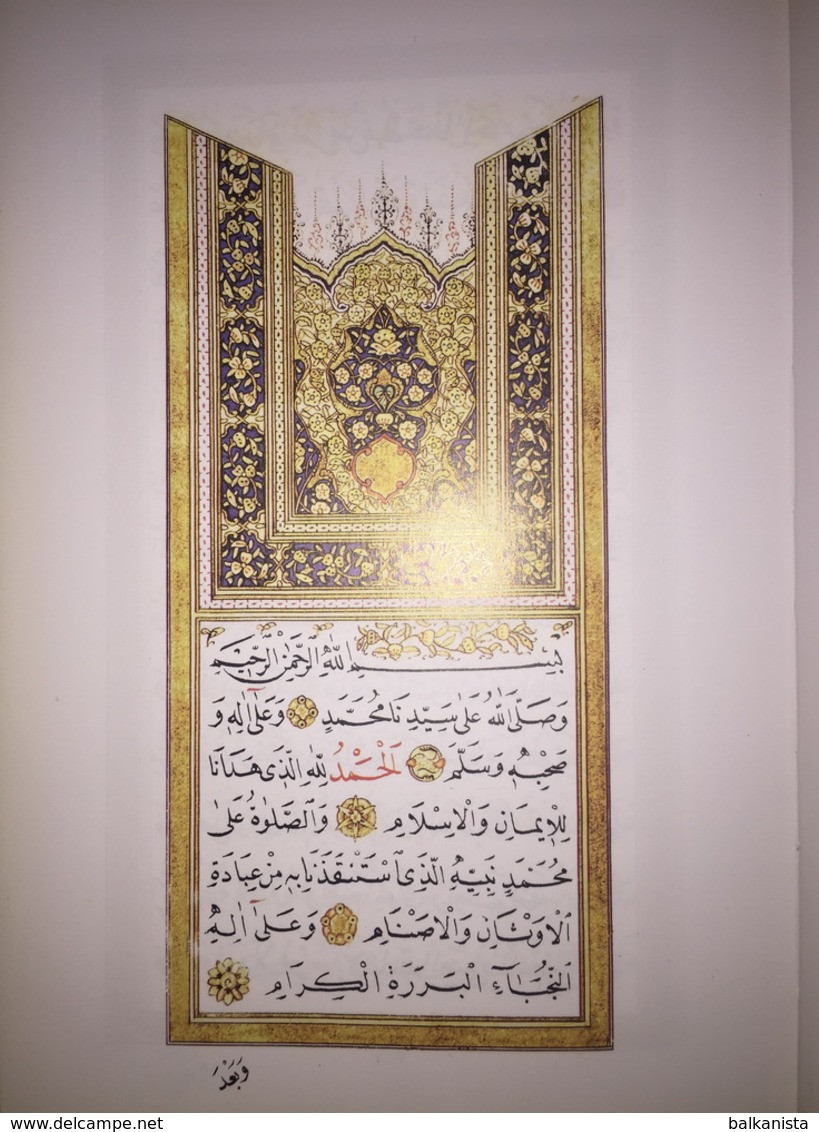 بِسْمِ اللّٰهِ الرَّحْمٰنِ الرَّحِيمِ
وَصَلَّى اللّٰهُ عَلٰى سَيِّدِنَا مُحَمَّدٍ وَعَلٰٓى اٰلِهٖ وَ
صَحْبِهٖ وَسَلَّمَ اَلْحَمْدُ لِلّٰهِ الَّذٖى هَدَانَا
لِلْاٖيمَانِ وَالْاِسْلَامِ وَالصَّلٰوةُ عَلٰى
مُحَمَّدٍ نَبِيِّهِ الَّذِى اسْتَنْقَذَنَا بِهٖ مِنْ عِبَادَةِ
الْاَوْثَانِ وَالْاَصْنَامِ وَعَلٰٓى اٰلِهِ
النُّجَبَآءِ الْبَرَرَةِ الْكِرَامِ
وَبَعْدَ
www.delcampe.net
balkanista